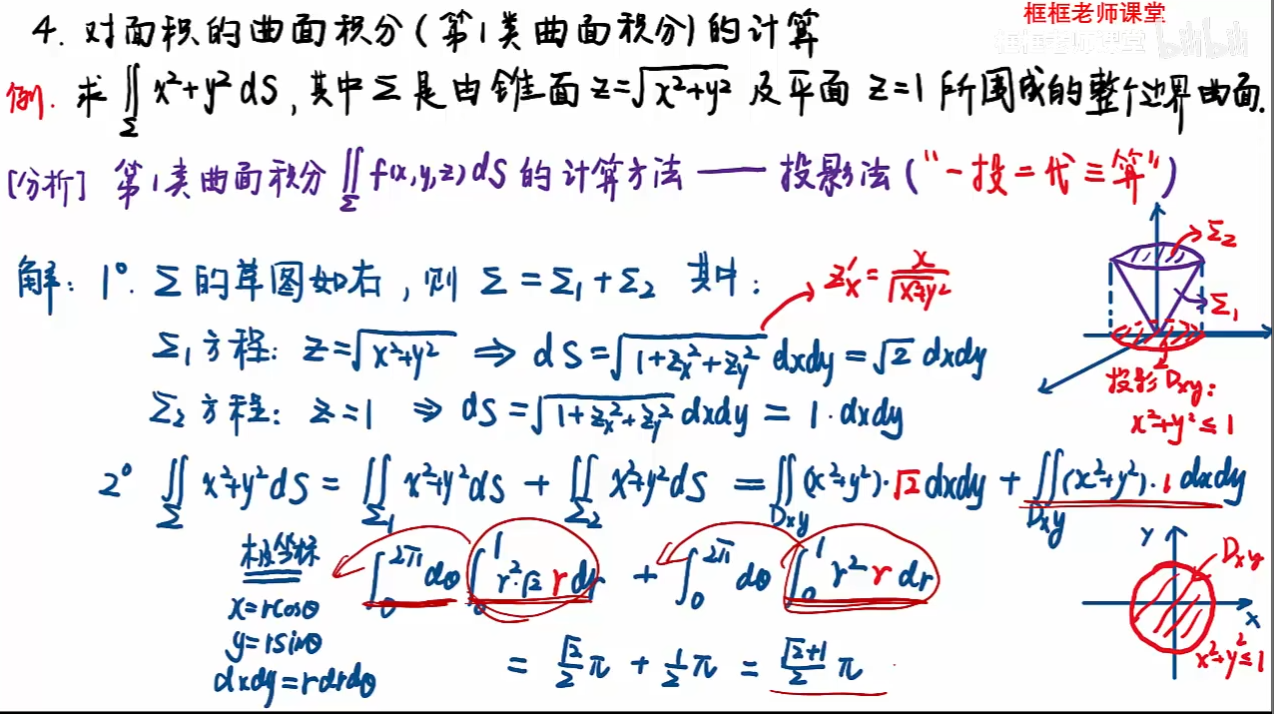 框框老师课堂
框框老师课堂 bilibili
4. 对面积的曲面积分(第1类曲面积分)的计算
例. 求 ∬_Σ x²+y² dS, 其中 Σ 是由锥面 z=√(x²+y²) 及平面 z=1 所围成的整个边界曲面.
[分析] 第1类曲面积分 ∬_Σ f(x,y,z) dS 的计算方法 —— 投影法 ("一投二代三算")
解: 1°. Σ 的草图如右, 则 Σ = Σ₁ + Σ₂ 其中:
z'ₓ = x/√(x²+y²)
Σ₁ 方程: z=√(x²+y²) ⇒ dS = √(1+zₓ²+z_y²) dxdy = √2 dxdy
Σ₂ 方程: z=1 ⇒ dS = √(1+zₓ²+z_y²) dxdy = 1·dxdy
Σ₂
Σ₁
投影 Dxy:
x²+y² ≤ 1
2° ∬_Σ x²+y² dS = ∬_Σ₁ x²+y² dS + ∬_Σ₂ x²+y² dS = ∬_Dxy (x²+y²)·√2 dxdy + ∬_Dxy (x²+y²)·1 dxdy
极坐标 ∫₀^2π dθ ∫₀^1 r²·√2 r dr + ∫₀^2π dθ ∫₀^1 r² r dr
x=rcosθ
y=rsinθ
dxdy=rdrdθ
= √2/2 π + 1/2 π = (√2+1)/2 π
Y
Dxy
X
x²+y²≤1